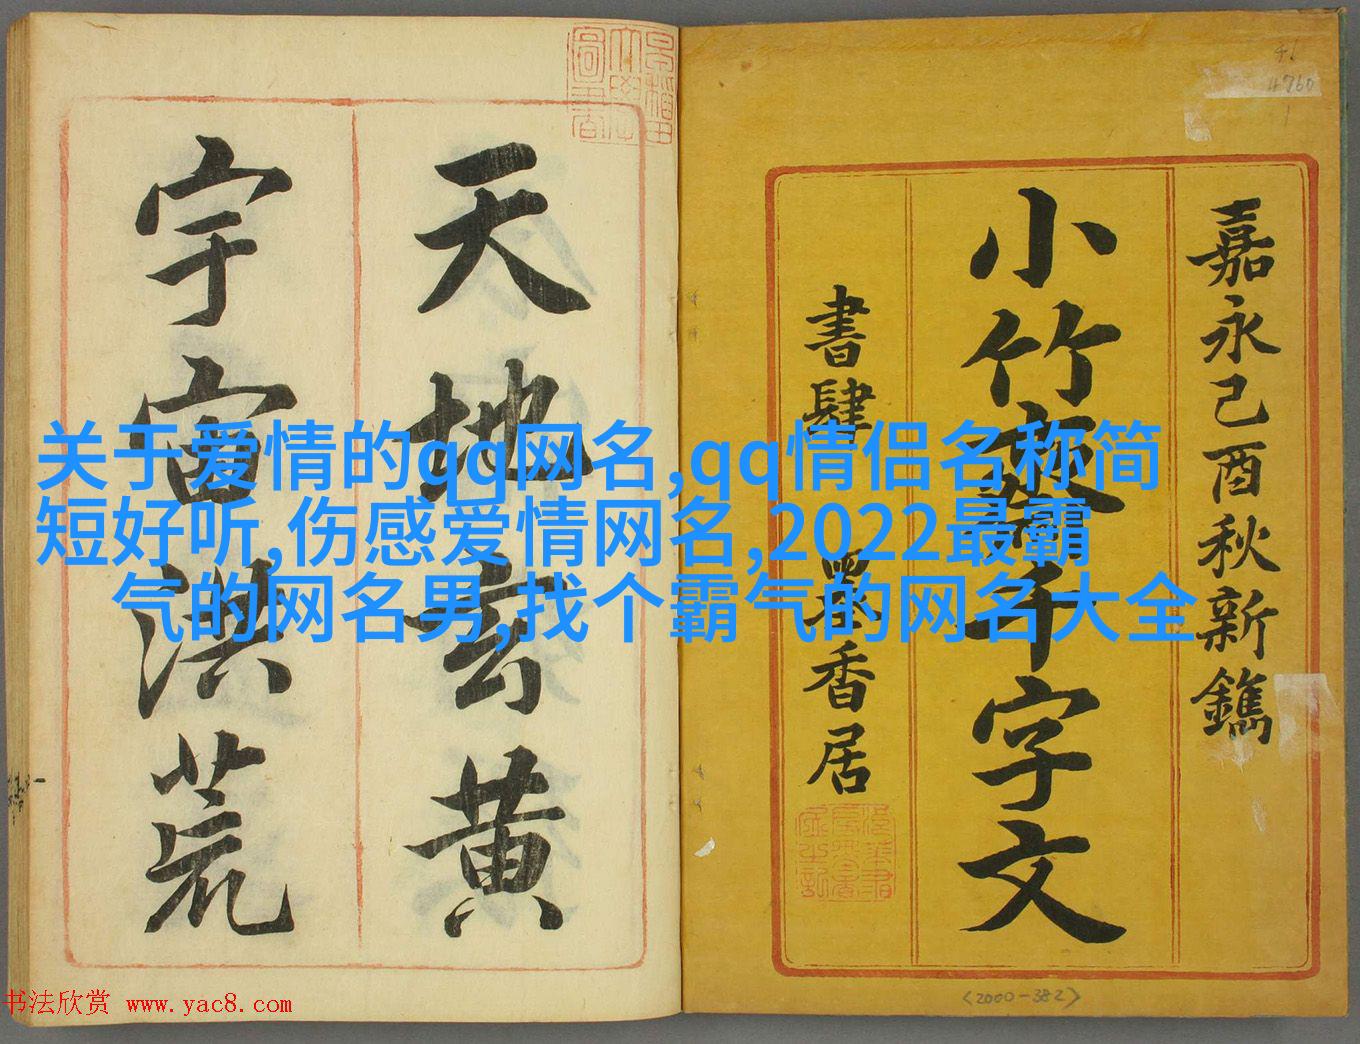 嘉永己酉秋新鐫
小竹齋千字文
書肆 墨香居
天地玄黄
宇宙洪荒
关于爱情的qq网名,qq情侣名称简
短好听,伤感爱情网名,2022最霸
气的网名男,找个霸气的网名大全
4760
<2000-382>
书法欣赏 www.yac8.com